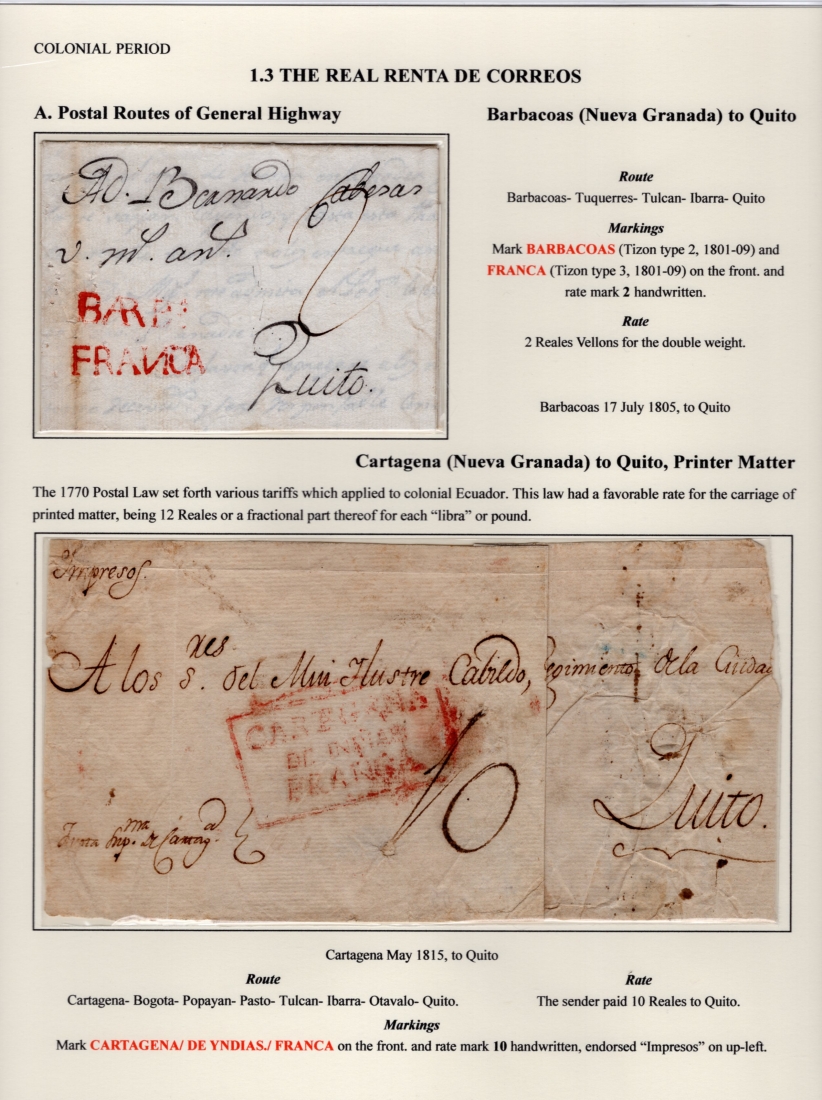 COLONIAL PERIOD
1.3 THE REAL RENTA DE CORREOS
A. Postal Routes of General Highway
Barbacoas (Nueva Granada) to Quito
Ad. Bernardo Cabesas
v. m.
2
BARB
FRANCA
Quito.
Route
Barbacoas- Tuquerres- Tulcan- Ibarra- Quito
Markings
Mark BARBACOAS (Tizon type 2, 1801-09) and
FRANCA (Tizon type 3, 1801-09) on the front. and
rate mark 2 handwritten.
Rate
2 Reales Vellons for the double weight.
Barbacoas 17 July 1805, to Quito
Cartagena (Nueva Granada) to Quito, Printer Matter
The 1770 Postal Law set forth various tariffs which applied to colonial Ecuador. This law had a favorable rate for the carriage of
printed matter, being 12 Reales or a fractional part thereof for each “libra” or pound.
Impresos.
A los s.res del Mui Ilustre Cabildo, Regimiento de la Ciudad
CARTAGENA
DE INDIAS
FRANCA
10
Quito.
Cartagena May 1815, to Quito
Route
Cartagena- Bogota- Popayan- Pasto- Tulcan- Ibarra- Otavalo- Quito.
Rate
The sender paid 10 Reales to Quito.
Markings
Mark CARTAGENA/ DE YNDIAS./ FRANCA on the front. and rate mark 10 handwritten, endorsed “Impresos” on up-left.